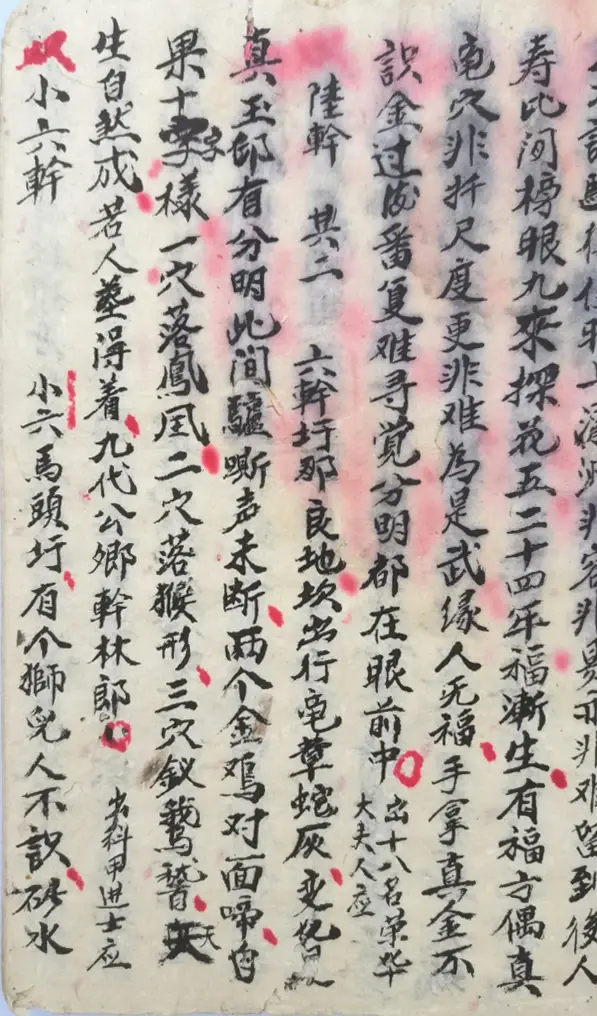 非难留到後人
寿此间停眼九來探花五二十四年福漸生有福方偶真
穴非扦尺度更非难為是武缘人无福手拿真金不
識金过番复难寻觉分明都在眼前中 出十八名荣华
大夫人应
陸幹 其二 六幹圩那良地坎出行草蛇灰变
真玉邸有分明此间驢嘶声未断两个金鸡对面啼自
果十字樣一穴落鳳二穴落猴形三穴釵天
生自然成若人塟得着九代公鄉幹林郎 出科甲進士应
小六幹 小六馬頭圩有个獅兒人不識砂水